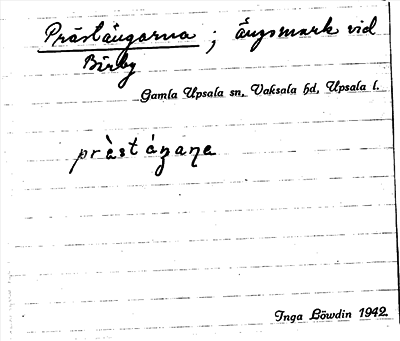 Prästängarna ; ängsmark vid
Bärby
Gamla Upsala sn, Vaksala hd, Upsala l.
pràst áŋaɳa
Inga Löwdin 1942.